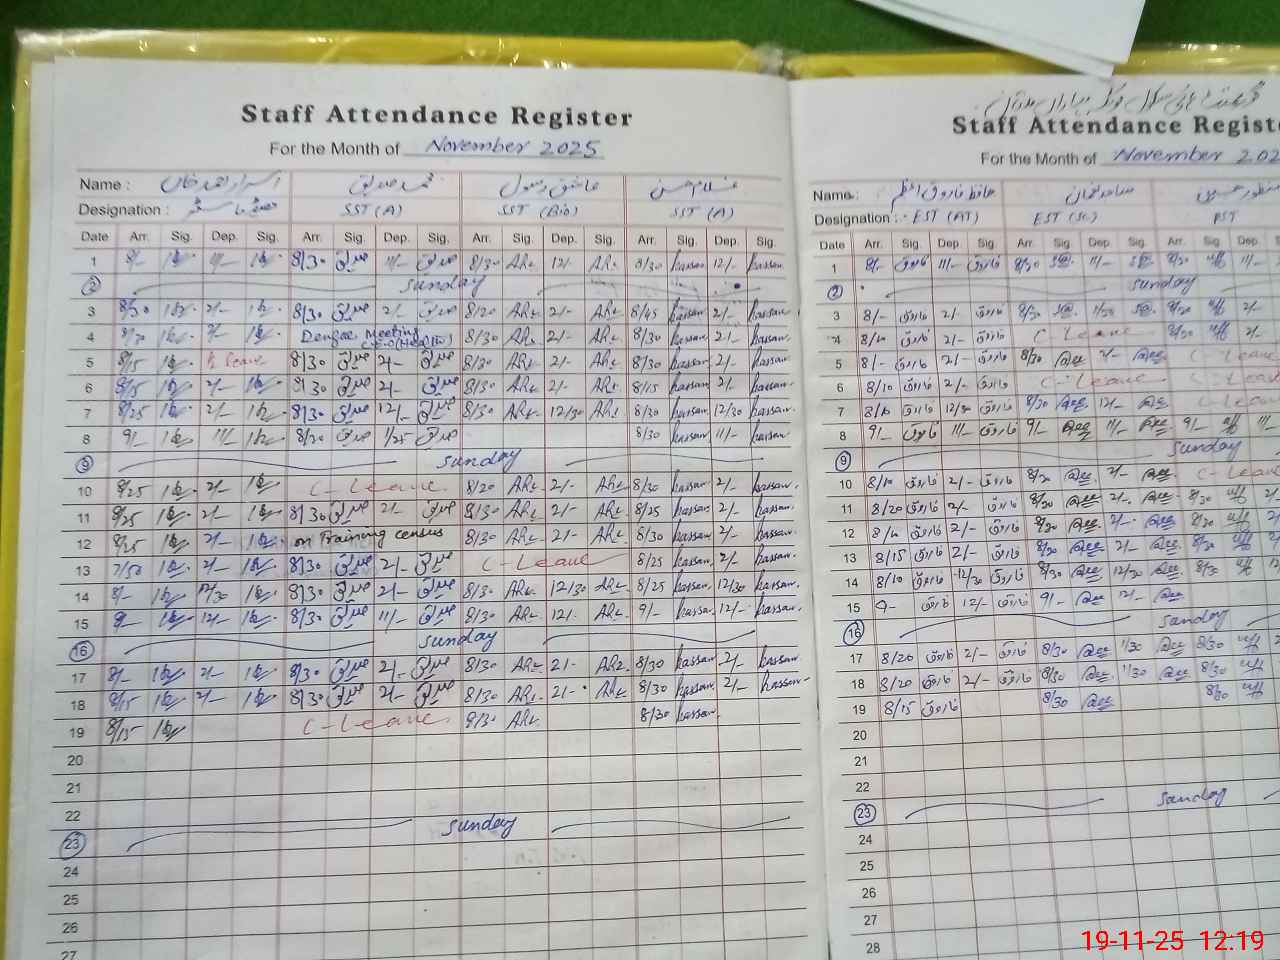 Staff Attendance Register
For the Month of November 2025
Name : اسرار احمد خان محمد صدیق عاشق رسول غلام حسن
Designation : SST (A) SST (Bio) SST (A)
Date Arr. Sig. Dep. Sig. Arr. Sig. Dep. Sig. Arr. Sig. Dep. Sig. Arr. Sig. Dep. Sig.
1 8/- 11/- 8/30 صدیق 11/- صدیق 8/30 12/- 8/30 hassan 12/- hassan
2 Sunday
3 8/30 2/- 8/30 صدیق 2/- صدیق 8/20 2/- 8/45 hassan 2/- hassan
4 8/30 2/- Dengue Meeting C.E.O (Health) 8/30 2/- 8/30 hassan 2/- hassan
5 8/15 leave 8/30 صدیق 2/- صدیق 8/30 2/- 8/30 hassan 2/- hassan
6 8/15 2/- 8/30 صدیق 2/- صدیق 8/30 2/- 8/15 hassan 2/- hassan
7 8/25 2/- 8/30 صدیق 12/- صدیق 8/30 12/30 8/30 hassan 12/30 hassan
8 9/- 11/- 8/20 صدیق 1/25 صدیق 8/30 hassan 11/- hassan
9 Sunday
10 8/25 2/- C-Leave 8/20 2/- 8/30 hassan 2/- hassan
11 8/25 2/- 8/30 صدیق 2/- صدیق 8/30 2/- 8/25 hassan 2/- hassan
12 8/25 2/- on Training census 8/30 2/- 8/30 hassan 2/- hassan
13 7/50 2/- 8/30 صدیق 2/- صدیق C-Leave 8/25 hassan 2/- hassan
14 8/- 12/30 8/30 صدیق 2/- صدیق 8/30 12/30 8/25 hassan 12/30 hassan
15 9/- 12/- 8/30 صدیق 11/- صدیق 8/30 12/- 9/- hassan 12/- hassan
16 Sunday
17 8/- 2/- 8/30 صدیق 2/- صدیق 8/30 2/- 8/30 hassan 2/- hassan
18 8/15 2/- 8/30 صدیق 2/- صدیق 8/30 2/- 8/30 hassan 2/- hassan
19 8/15 C-Leave 8/30 8/30 hassan
20
21
22
23 Sunday
24
25
26
27
Staff Attendance Regist
For the Month of November 202
Name : حافظ فاروق اعظم ساجد نعمان منظور حسین
Designation : EST (AT) EST (Sc.) PST
Date Arr. Sig. Dep. Sig. Arr. Sig. Dep. Sig. Arr. Sig. Dep.
1 8/- فاروق 11/- فاروق 8/30 11/- 8/30 11/-
2 Sunday
3 8/- فاروق 2/- فاروق 8/30 1/30 8/20 2/-
4 8/10 فاروق 2/- فاروق C-Leave 8/30 2/-
5 8/- فاروق 2/- فاروق 8/30 2/- C-Leave
6 8/10 فاروق 2/- فاروق C-Leave C-Leave
7 8/10 فاروق 12/30 فاروق 8/30 12/- C-Leave
8 9/- فاروق 11/- فاروق 9/- 11/- 9/- 11/-
9 Sunday
10 8/10 فاروق 2/- فاروق 8/30 2/- C-Leave
11 8/20 فاروق 2/- فاروق 8/30 2/- 8/30 2/-
12 8/10 فاروق 2/- فاروق 8/30 2/- 8/30 2/-
13 8/15 فاروق 2/- فاروق 8/30 2/- 8/30 2/-
14 8/10 فاروق 12/30 فاروق 8/30 12/30 8/30 12/-
15 9- فاروق 12/- فاروق 9/- 12/-
16 Sunday
17 8/20 فاروق 2/- فاروق 8/30 1/30 8/30 2/-
18 8/20 فاروق 2/- فاروق 8/30 1/30 8/30 2/-
19 8/15 فاروق 8/30 8/30
20
21
22
23 Sunday
24
25
26
27
28
19-11-25 12:19